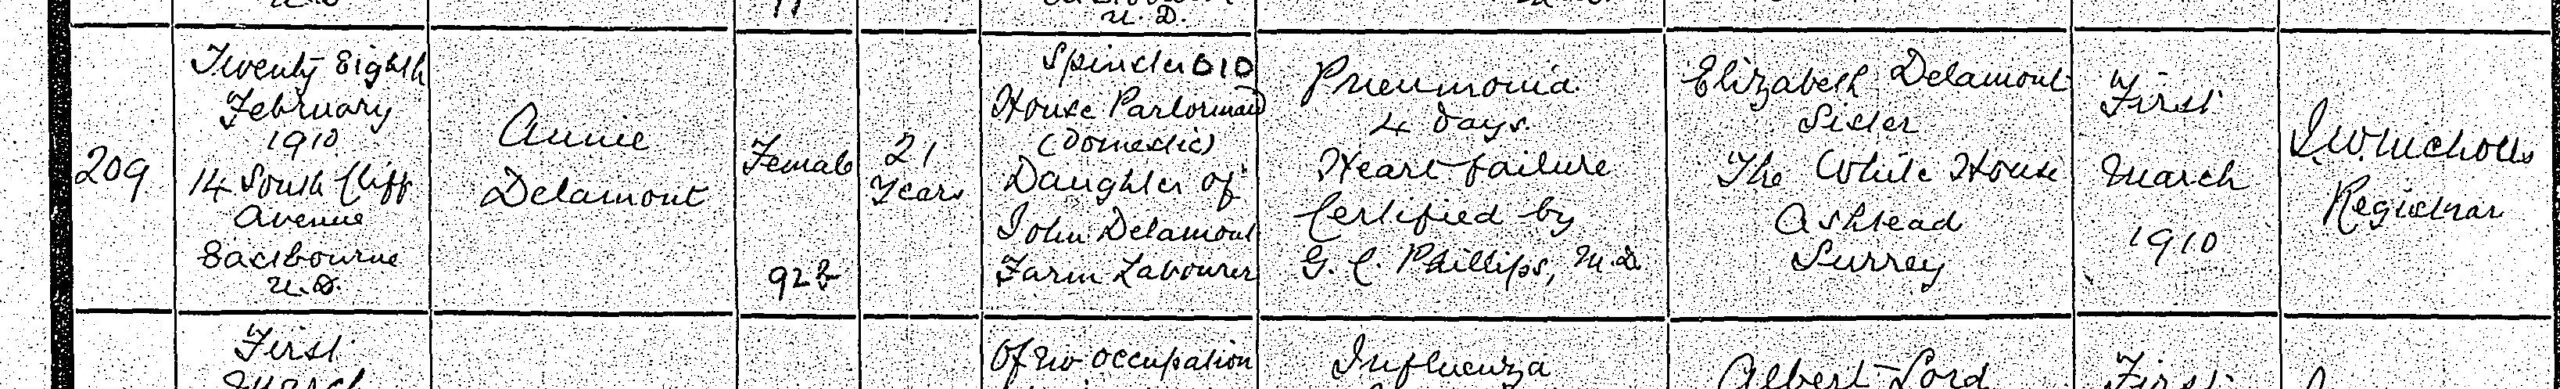 U. D.
209
Twenty Eighth
February
1910
14 South Cliff
Avenue
Eastbourne
U.D.
Annie
Delamont
Female
922
21
Years
Spinster 010
House Parlormaid
(Domestic)
Daughter of
John Delamont
Farm Labourer
Pneumonia
4 days.
Heart failure
Certified by
G. C. Phillips, M.D.
Elizabeth Delamont
Sister
The White House
Ashtead
Surrey
First
March
1910
J.W. Nicholls
Registrar
First
March
Of no occupation
Influenza
Albert Lord
First